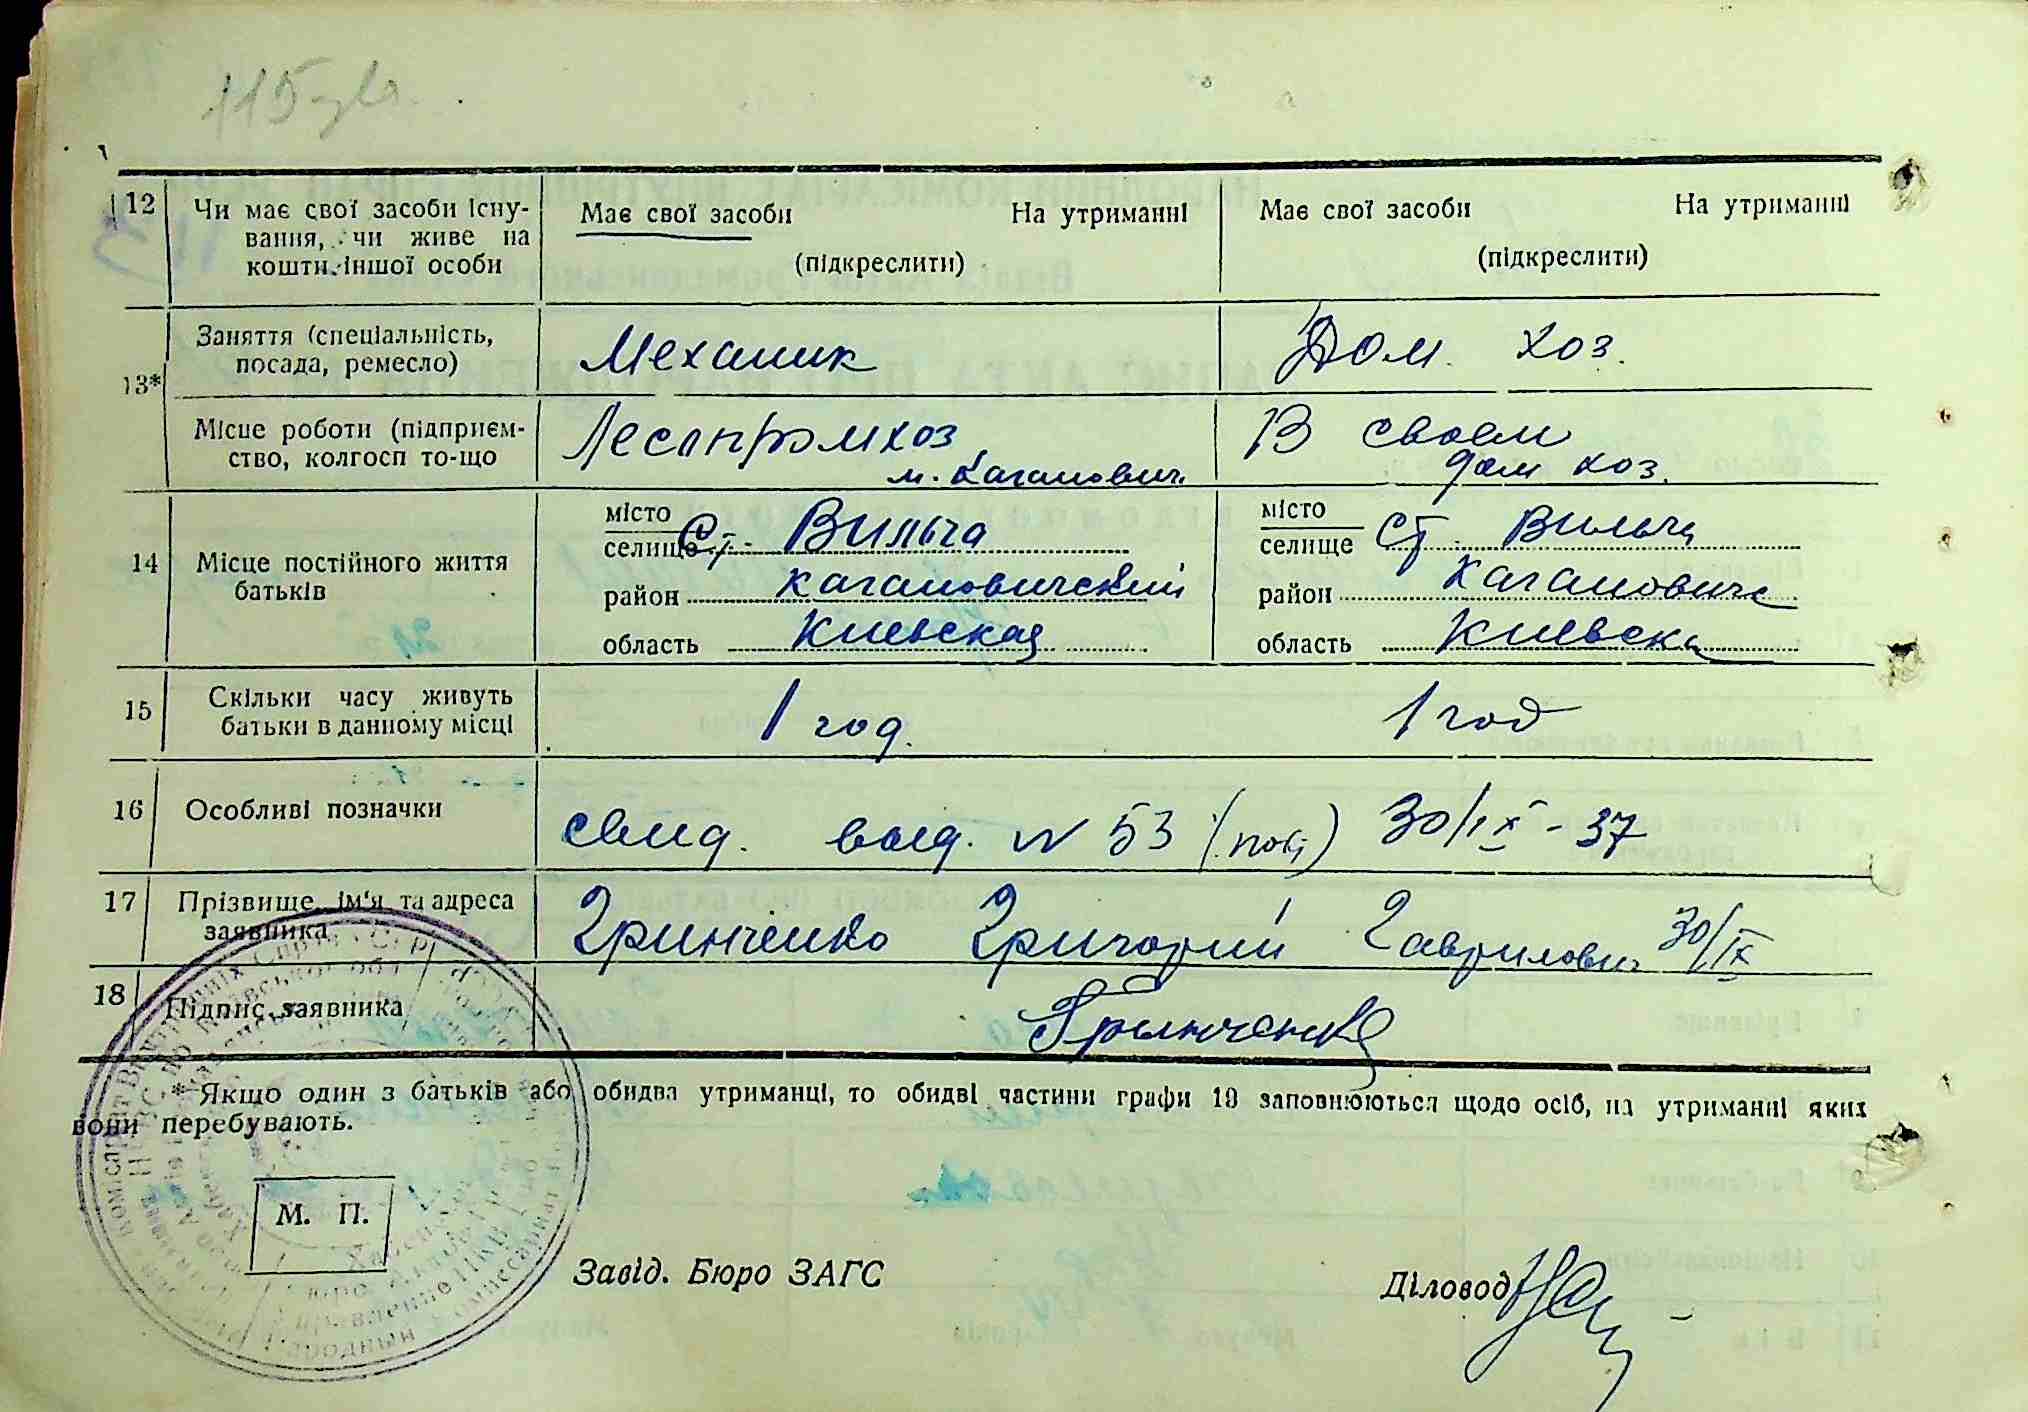 115
12 Чи має свої засоби існу- Має свої засоби На утриманні Має свої засоби На утриманні
вання, чи живе на (підкреслити) (підкреслити)
кошти іншої особи
13* Заняття (спеціальність, Механик Дом. хоз.
посада, ремесло)
Місце роботи (підприєм- Лесопромхоз В своем
ство, колгосп то-що м. Каганович. дом хоз.
14 Місце постійного життя батьків місто селище Ст. Вильча місто селище Ст. Вильча
район Кагановичский район Кагановичс
область Киевская область Киевска
15 Скільки часу живуть 1 год. 1 год
батьки в данному місці
16 Особливі позначки свид. выд. № 53 30/IX-37
17 Прізвище ім'я та адреса Гринченко Григорий Гаврилович 30/IX
заявника
18 Підпис заявника Грынченко
* Якщо один з батьків або обидва утриманці, то обидві частини графи 13 заповнюються щодо осіб, на утриманні яких
вони перебувають.
М. П.
Завід. Бюро ЗАГС Діловод